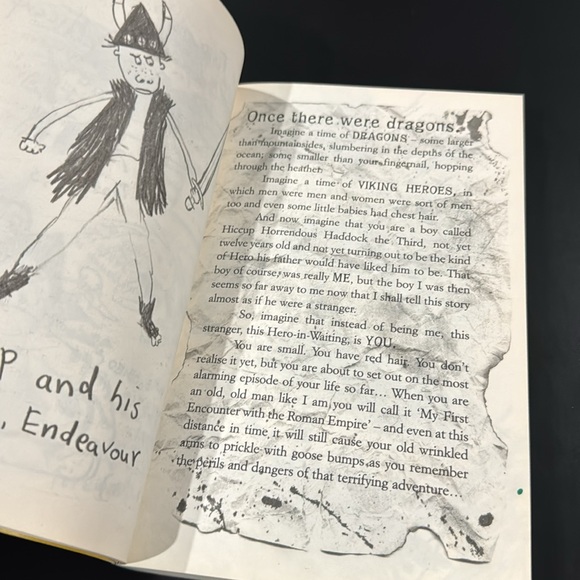 p and his
, Endeavour
Once there were dragons.
Imagine a time of DRAGONS – some larger
than mountainsides, slumbering in the depths of the
ocean; some smaller than your fingernail, hopping
through the heather.
Imagine a time of VIKING HEROES, in
which men were men and women were sort of men
too and even some little babies had chest hair.
And now imagine that you are a boy called
Hiccup Horrendous Haddock the Third, not yet
twelve years old and not yet turning out to be the kind
of Hero his father would have liked him to be. That
boy of course, was really ME, but the boy I was then
seems so far away to me now that I shall tell this story
almost as if he were a stranger.
So, imagine that instead of being me, this
stranger, this Hero-in-Waiting, is YOU.
You are small. You have red hair. You don't
realise it yet, but you are about to set out on the most
alarming episode of your life so far... When you are
an old, old man like I am you will call it 'My First
Encounter with the Roman Empire' – and even at this
distance in time it will still cause your old wrinkled
arms to prickle with goose bumps as you remember
the perils and dangers of that terrifying adventure...